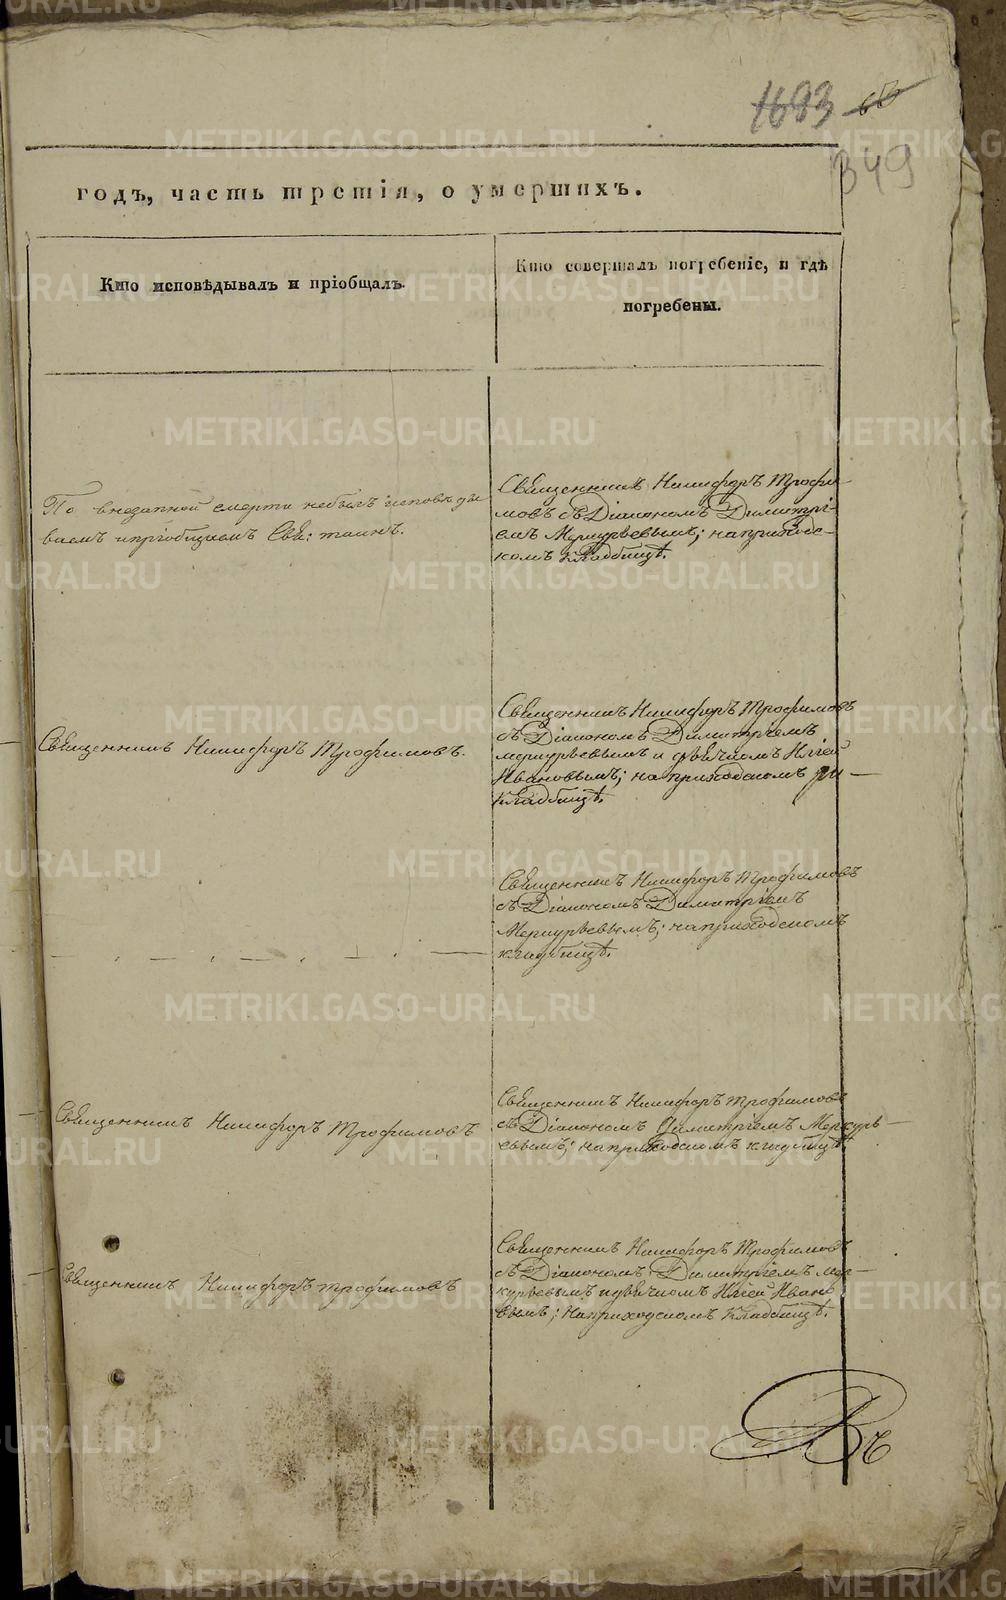 1693 65
349
годъ, часть третія, о умершихъ.
Кто исповѣдывалъ и пріобщалъ.
Кто совершалъ погребеніе, и гдѣ
погребены.
По внезапной смерти небылъ исповѣды
ваемъ ипріобщаемъ Свя: таинъ.
Священникъ Никифоръ Трофи-
мовъ съ Діакономъ Димитрі-
емъ Меркурьевымъ; наприходс-
комъ кладбищѣ.
Священникъ Никифоръ Трофимовъ.
Священникъ Никифоръ Трофимовъ
съ Діакономъ Димитріемъ
меркурьевымъ и дьячкомъ Ильей
Ивановымъ; на приходскомъ
кладбищѣ.
Священникъ Никифоръ Трофимовъ
съ Діакономъ Димитріемъ
Меркурьевымъ; наприходскомъ
кладбищѣ.
Священникъ Никифоръ Трофимовъ
Священникъ Никифоръ Трофимовъ
съ Діакономъ Димитріемъ Меркурь-
евымъ; наприходскомъ кладбищѣ.
Священникъ Никифоръ трофимовъ
Священникъ Никифоръ Трофимовъ
съ Діакономъ Димитріемъ мер-
курьевымъ идьячкомъ Ильей Ивано
вымъ; наприходскомъ кладбищѣ.
METRIKI.GASO-URAL.RU